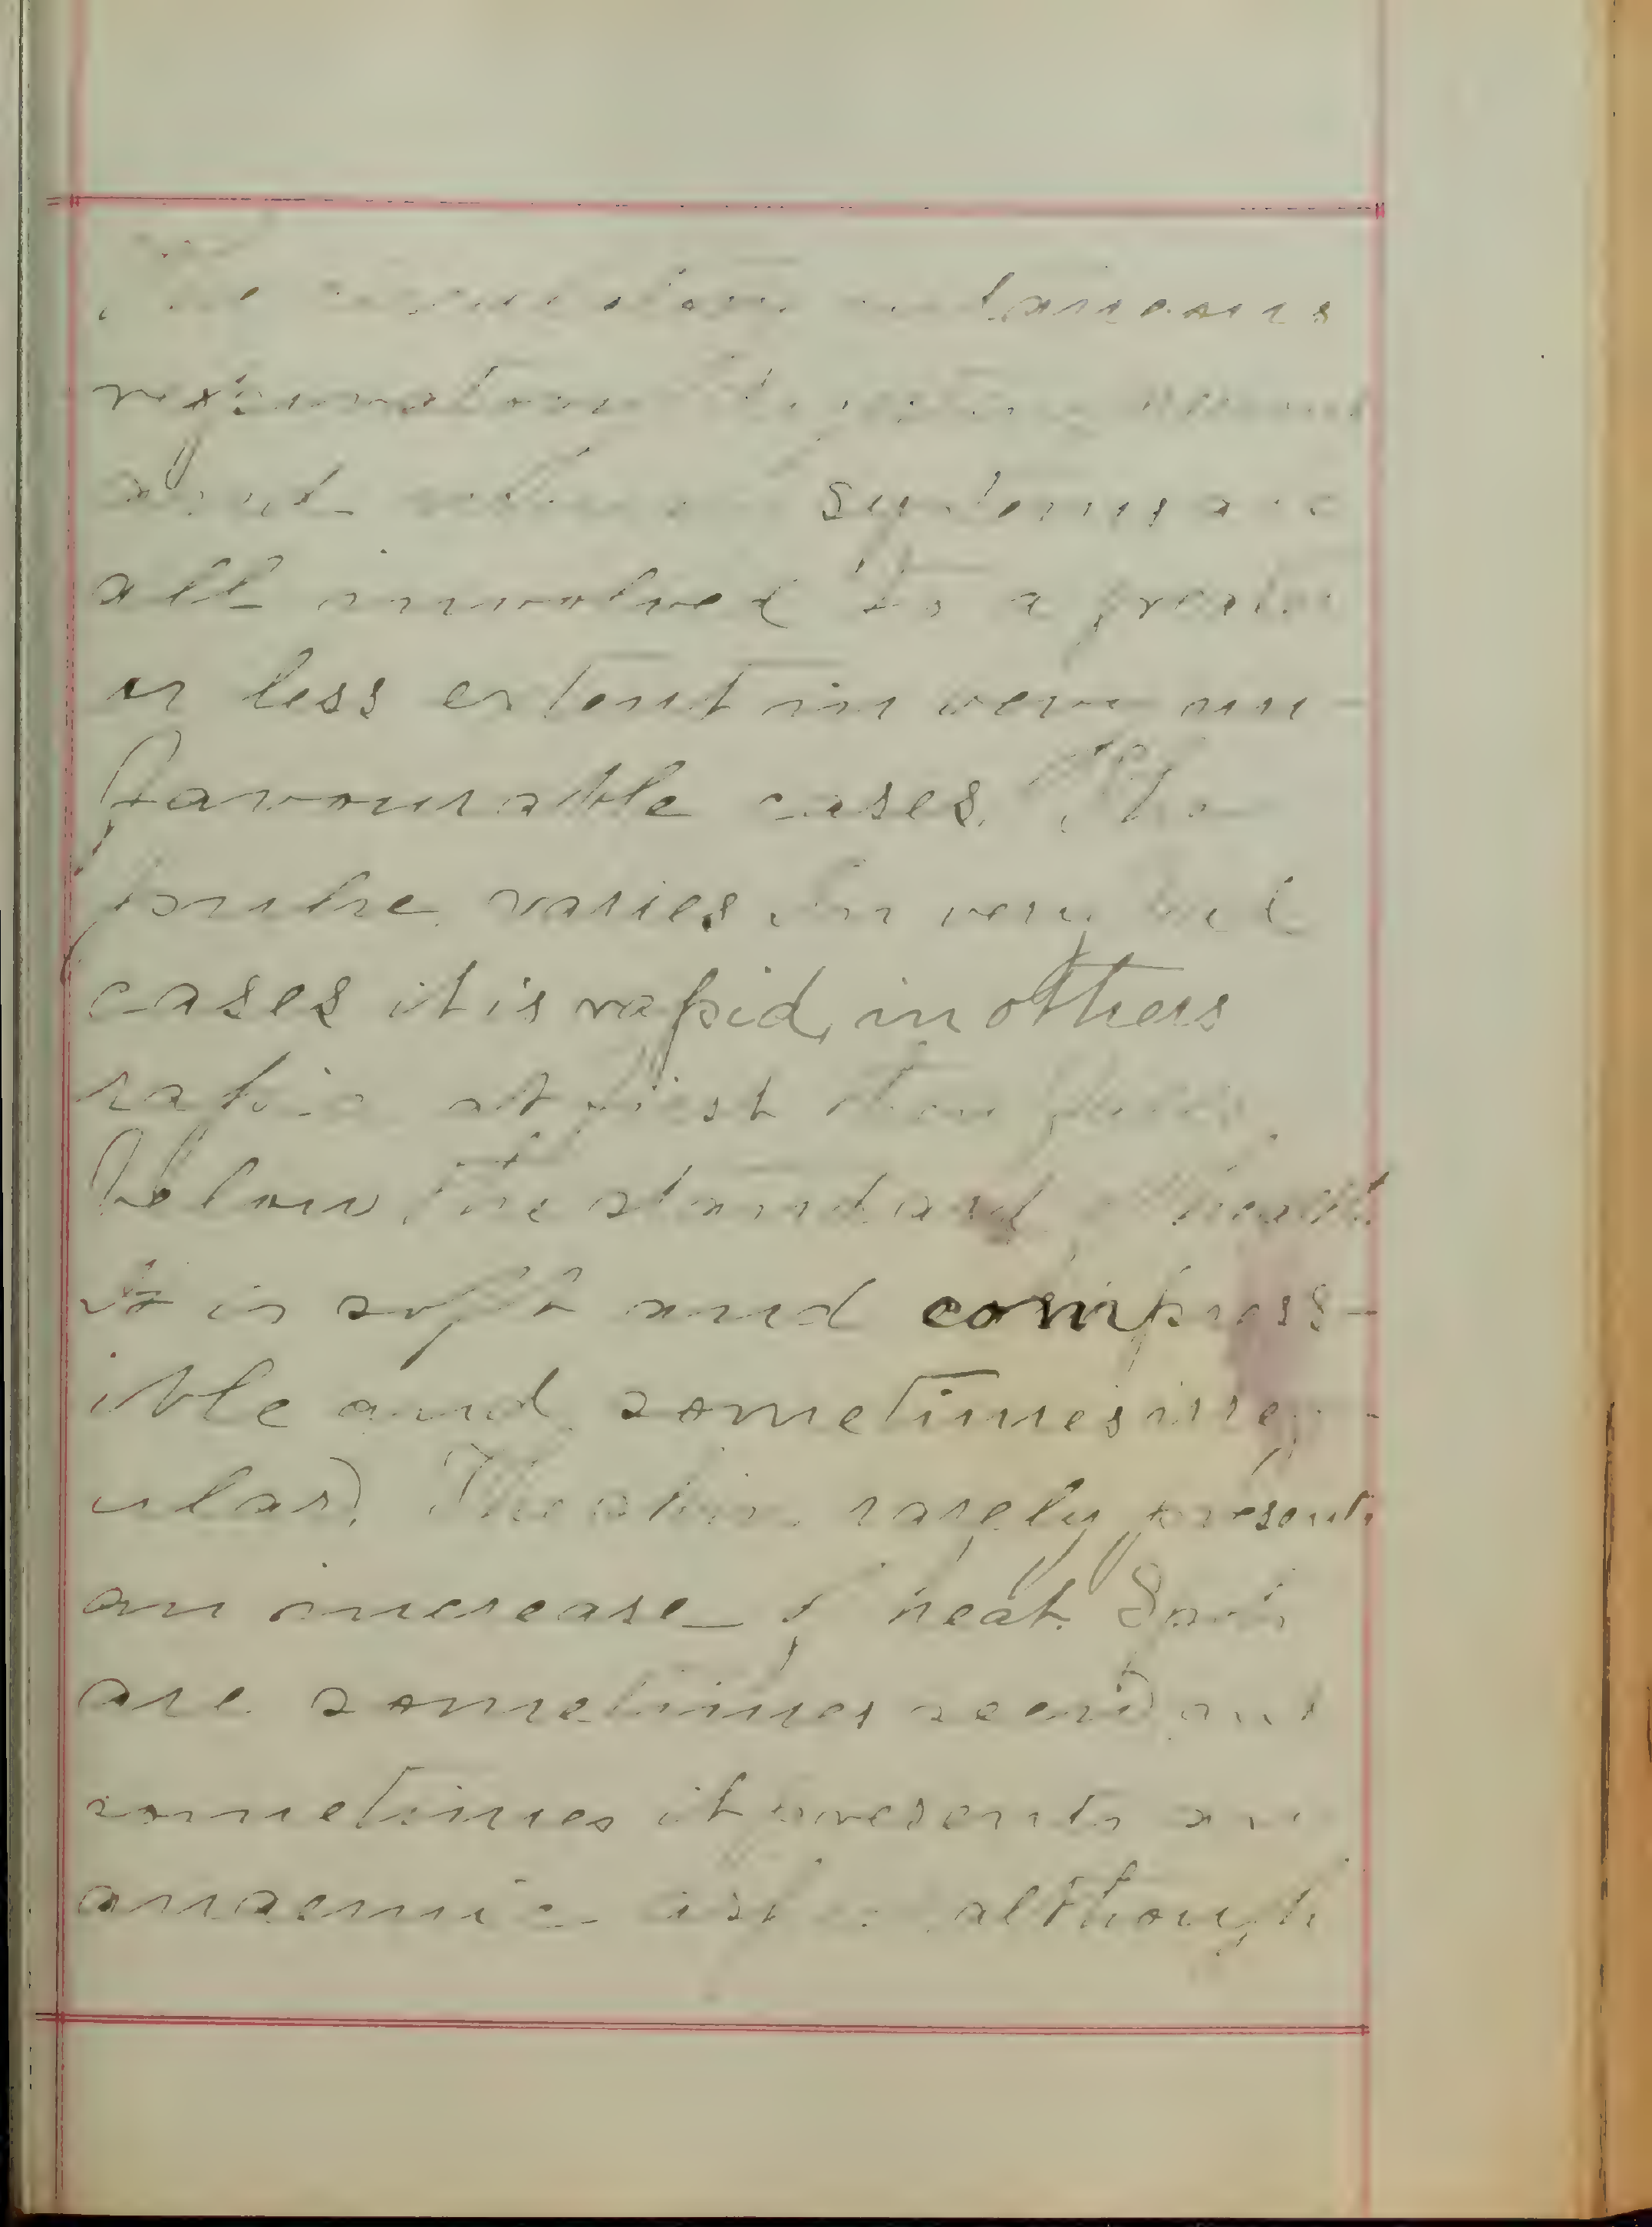 The circulatory, cutaneous
respiratory digestive nervous
and systems are
all involved to a greater
or less extent in very un-
favourable cases. The
pulse varies. In very bad
cases it is rapid, in others
rapid at first then falls
below the standard of health
It is soft and compress-
ible and sometimes irreg-
ular). The skin rarely presents
an increase of heat. Spots
are sometimes seen) and
sometimes it presents an
anaemic although